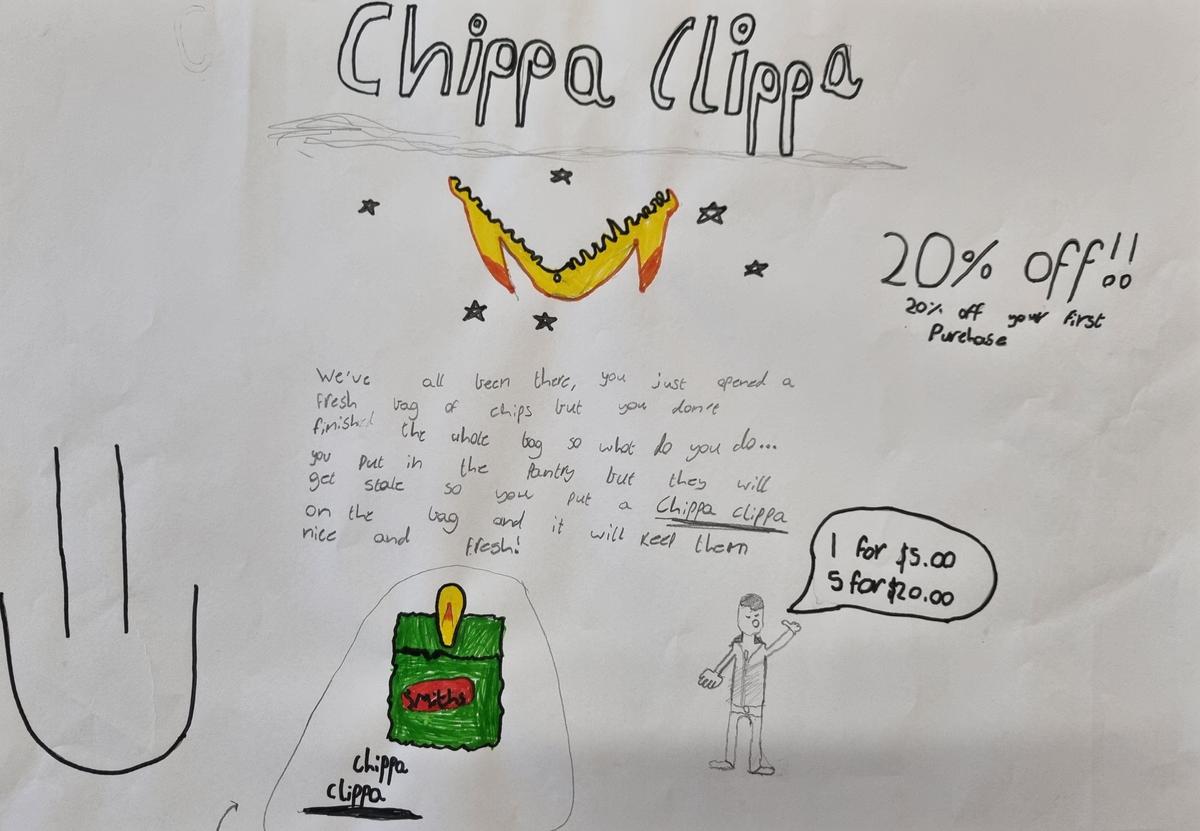 Chippa Clippa
20% off!!
20% off your first
Purchase
We've all been there, you just opened a
fresh bag of chips but you don't
finished the whole bag so what do you do...
you put in the Pantry but they will
get stale so you put a Chippa clippa
on the bag and it will keep them
nice and fresh!
1 for $5.00
5 for $20.00
Smiths
chippa
clippa